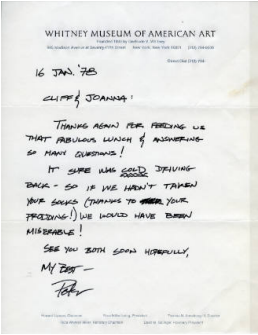 WHITNEY MUSEUM OF AMERICAN ART
16 JAN. '78
CLIFF & JOANNA:
THANKS AGAIN FOR FEEDING US
THAT FABULOUS LUNCH & ANSWERING
SO MANY QUESTIONS!
IT SURE WAS COLD DRIVING
BACK - SO IF WE HADN'T TAKEN
YOUR SOCKS (THANKS TO YOUR
PRODDING!) WE WOULD HAVE BEEN
MISERABLE!
SEE YOU BOTH SOON HOPEFULLY,
MY BEST —